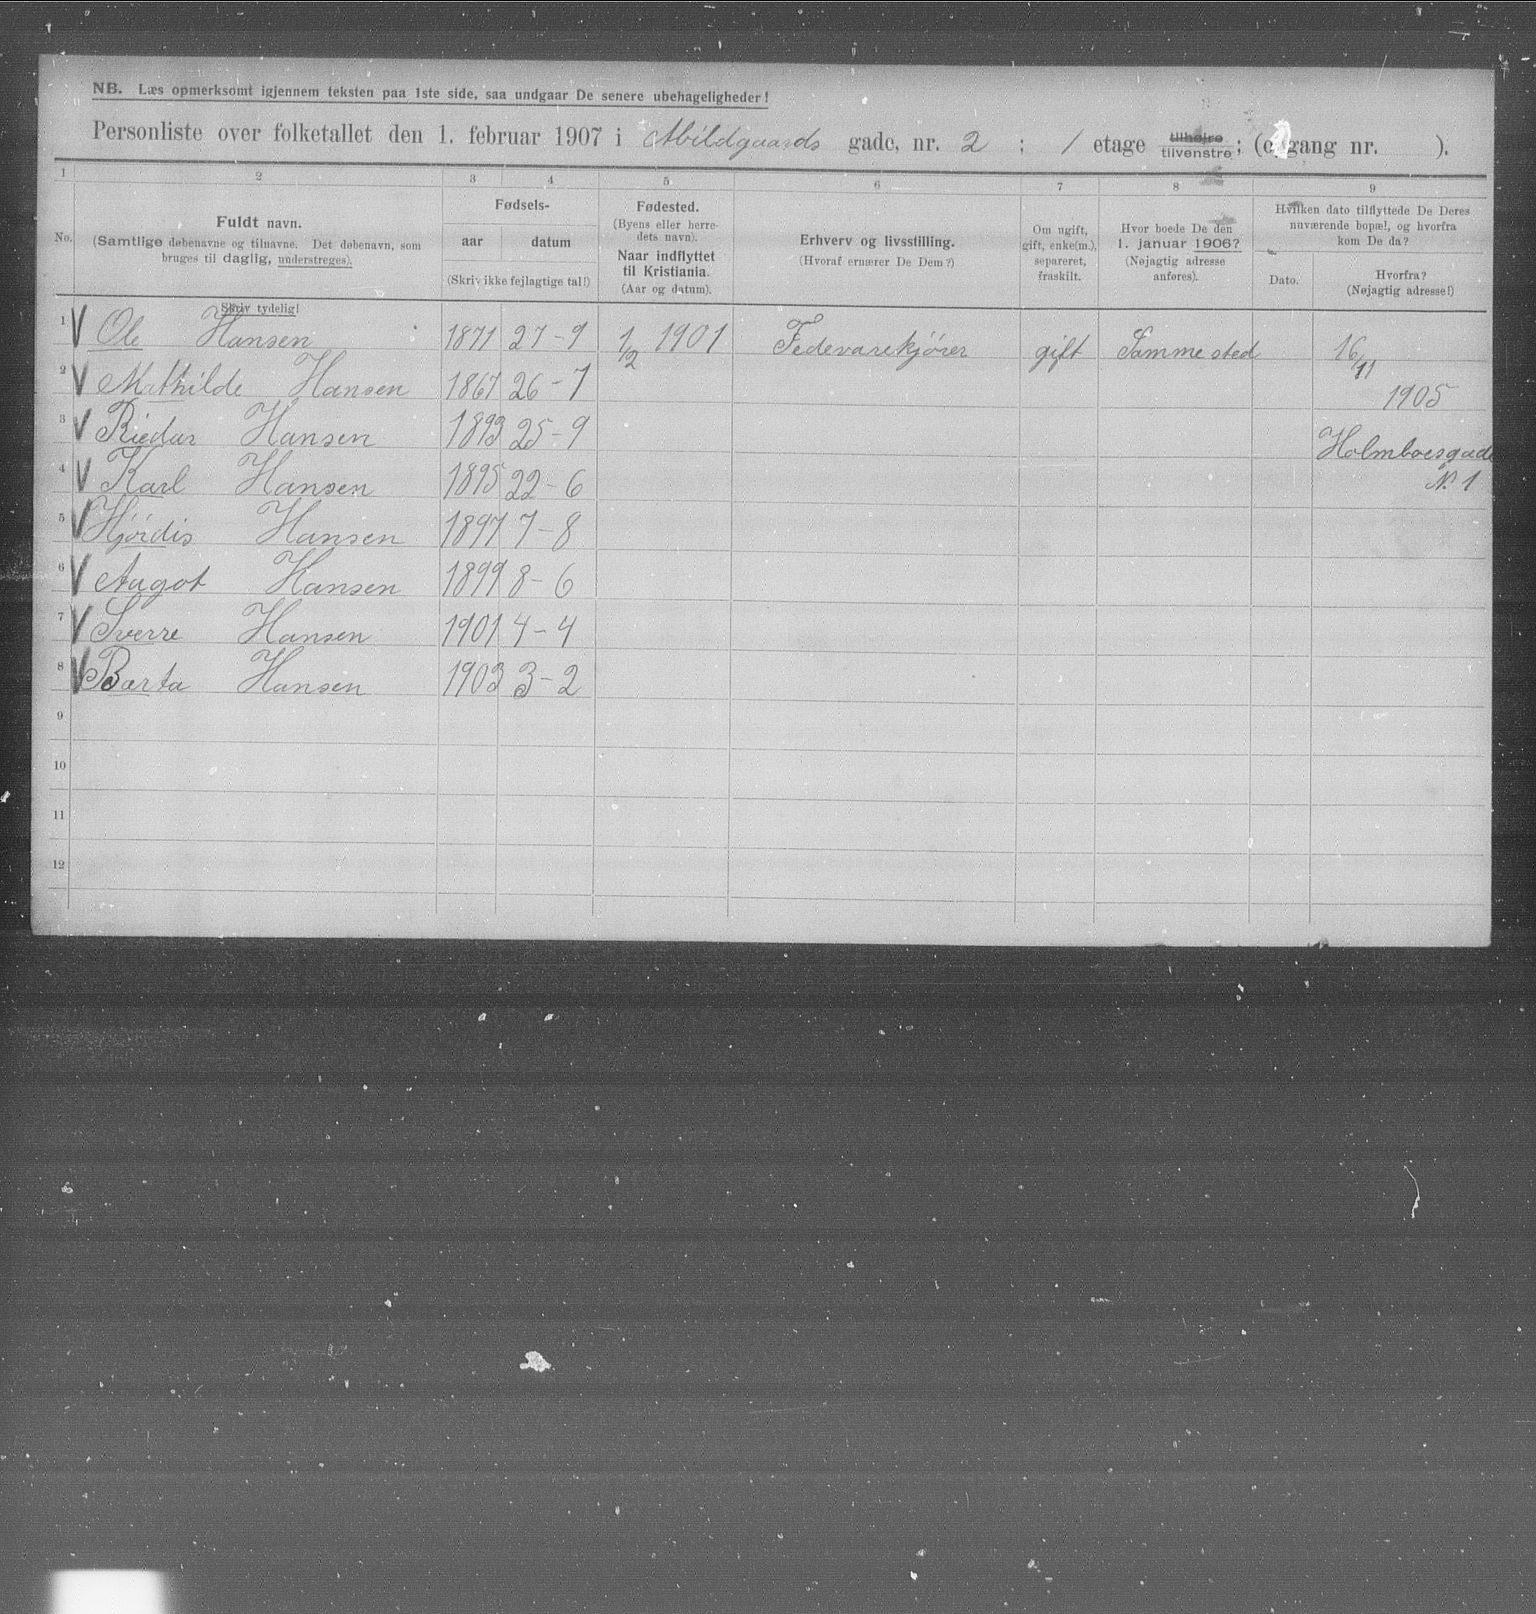 NB. Læs opmerksomt igjennem teksten paa 1ste side, saa undgaar De senere ubehageligheder!
Personliste over folketallet den 1. februar 1907 i Abildgaards gade, nr. 2 ; 1 etage tilhøjre tilvenstre; (opgang nr. ).
1 2 3 4 5 6 7 8 9
No.
Fuldt navn.
(Samtlige døbenavne og tilnavne. Det døbenavn, som
bruges til daglig, understreges).
Skriv tydelig!
Fødsels-
aar datum
(Skriv ikke fejlagtige tal!)
Fødested.
(Byens eller herre-
dets navn).
Naar indflyttet
til Kristiania.
(Aar og datum).
Erhverv og livsstilling.
(Hvoraf ernærer De Dem?)
Om ugift,
gift, enke(m.),
separeret,
fraskilt.
Hvor boede De den
1. januar 1906?
(Nøjagtig adresse
anføres).
Hvilken dato tilflyttede De Deres
nuværende bopæl, og hvorfra
kom De da?
Dato.
Hvorfra?
(Nøjagtig adresse!)
1 Ole Hansen 1871 27-9 1/2 1901 Fedevarekjører gift Samme sted 16/11
2 Mathilde Hansen 1867 26-7 1905
3 Riedar Hansen 1893 25-9 Holmboesgade
4 Karl Hansen 1895 22-6 N. 1
5 Hjørdis Hansen 1897 7-8
6 Aagot Hansen 1899 8-6
7 Sverre Hansen 1901 4-4
8 Barta Hansen 1903 3-2
9
10
11
12